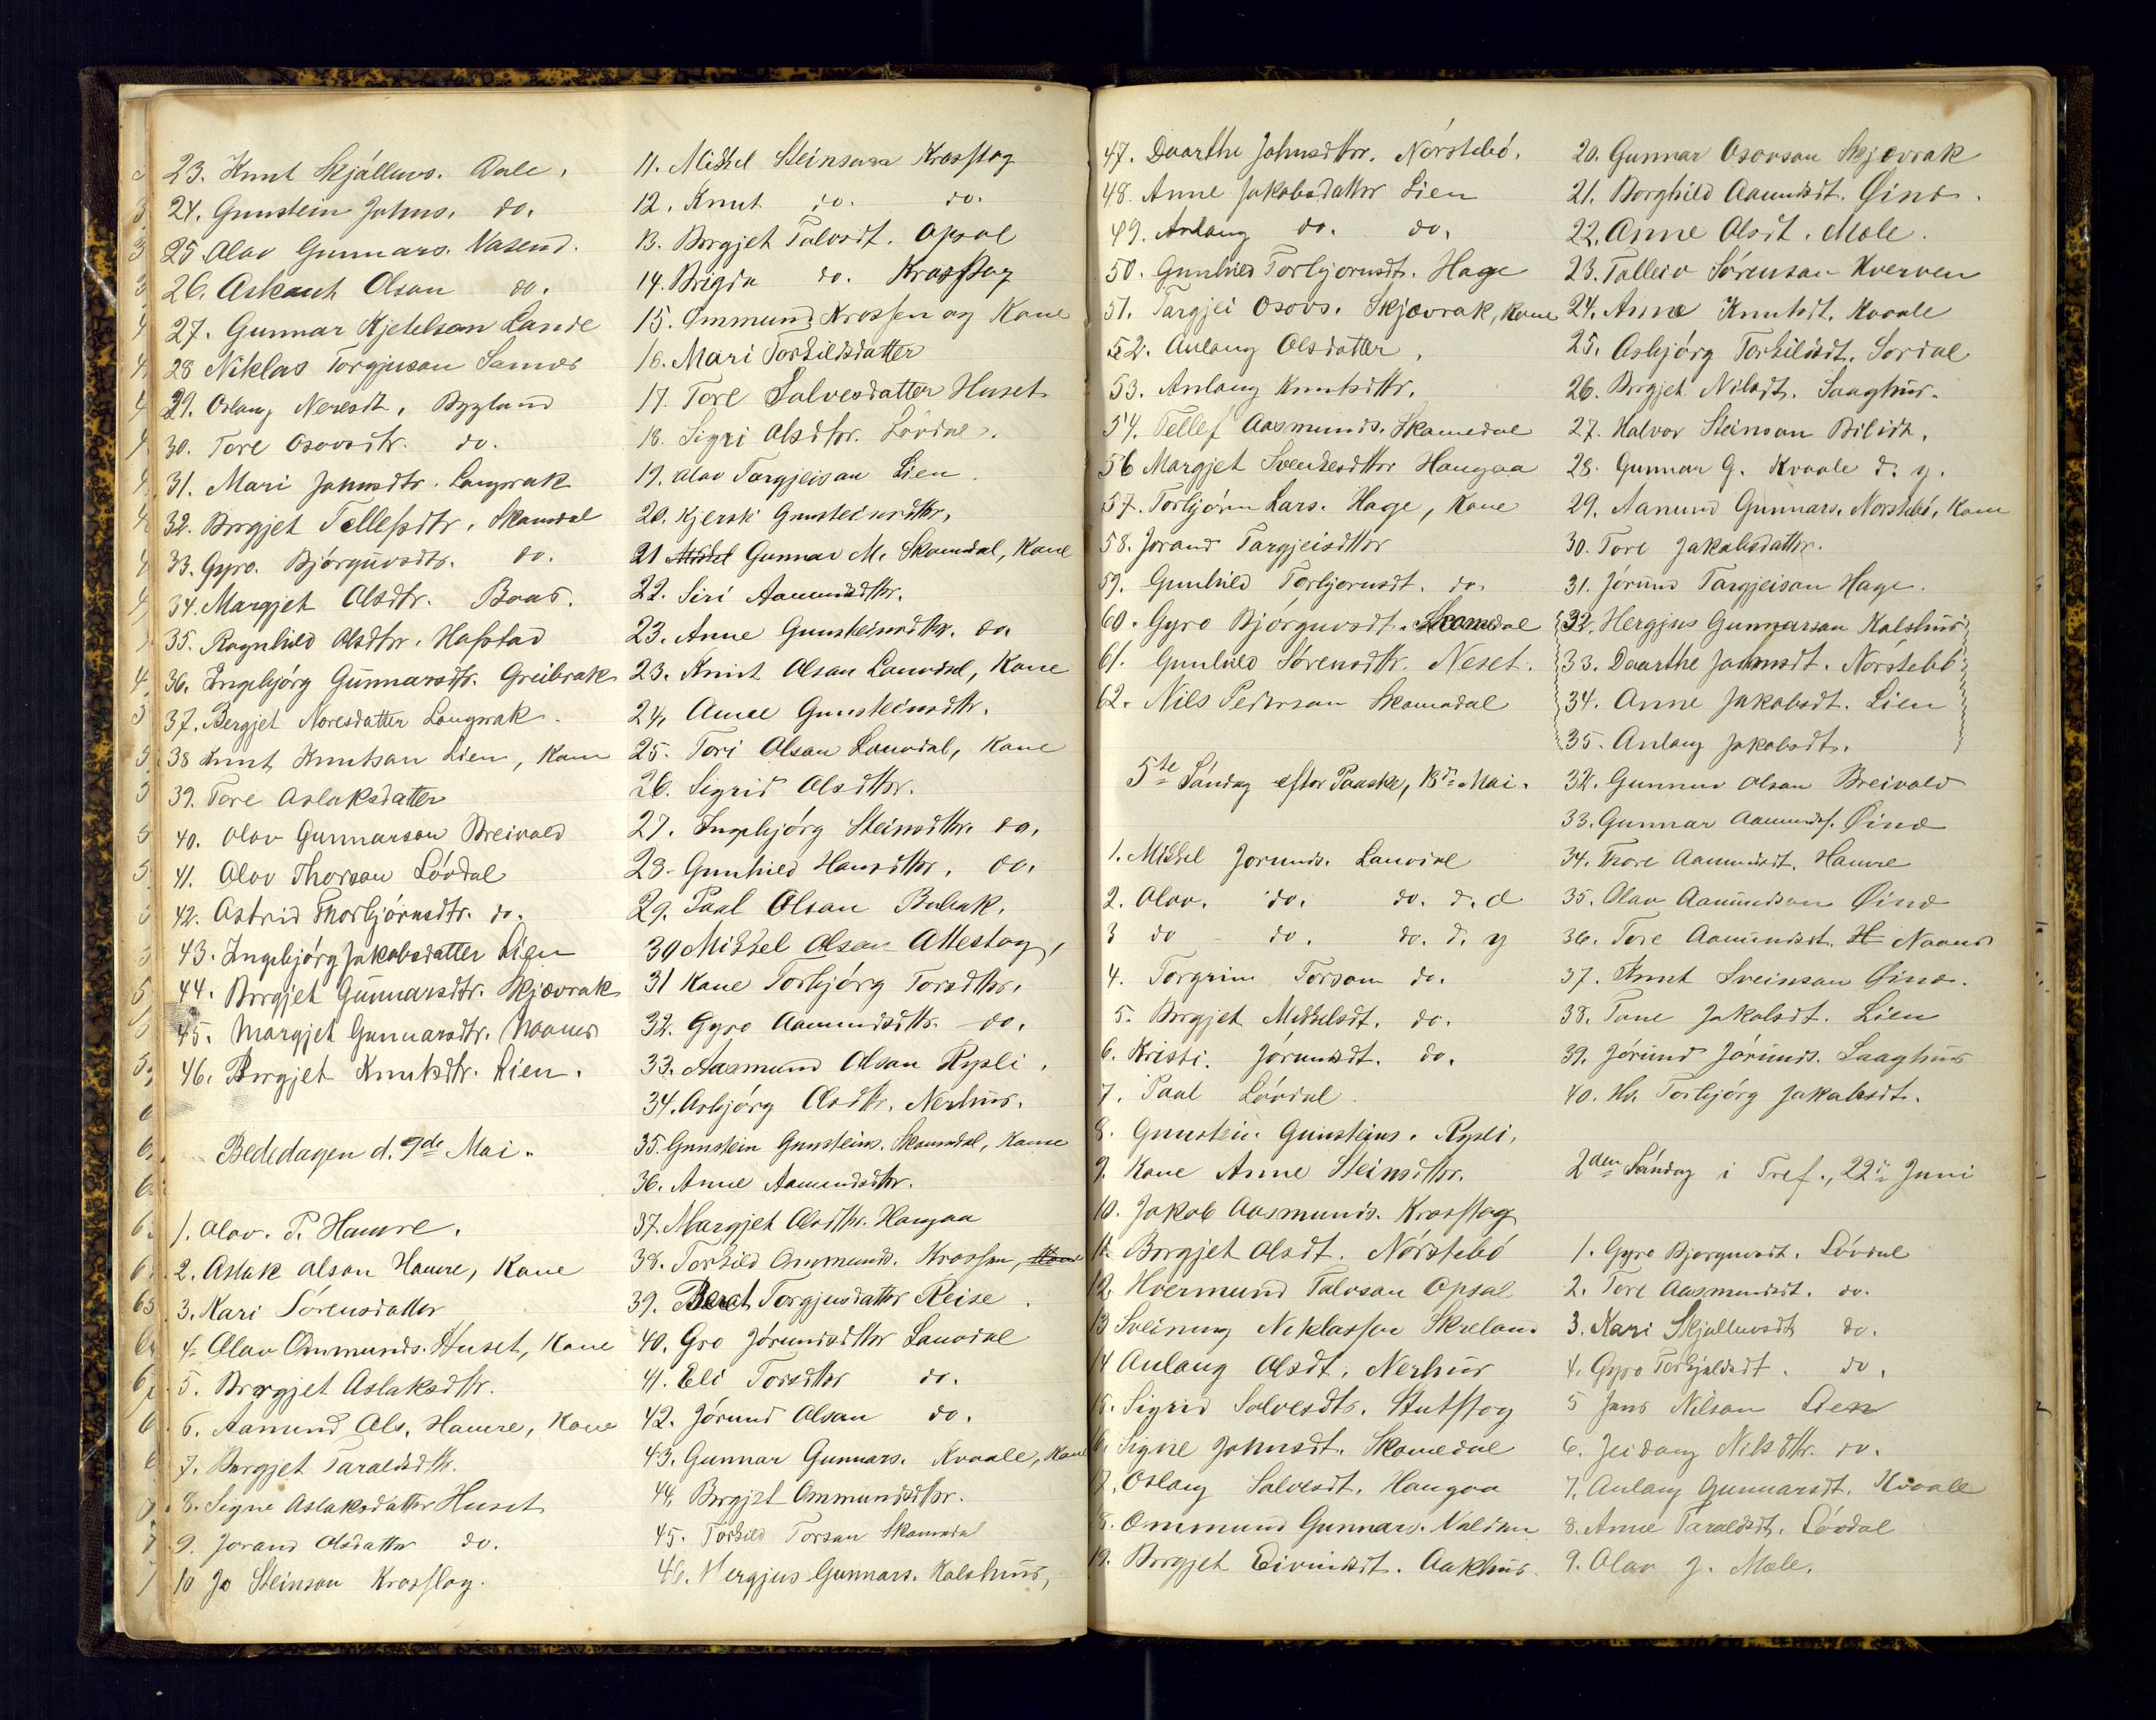 23. Knut Skjálluvs. Dale.
24. Gunstein Johns. do.
25 Olav Gunnars. Nasend.
26. Askaut Olson do.
27. Gunnar Kjetelson Lande
28 Niklas Torgjuson Samdr
29. Oslaug Neresdt. Bygland
30. Tore Osovsdtr. do.
31. Mari Johnsdtr. Langwak
32. Borgjet Tellefsdtr. Skamdal
33. Gyro. Bjórguvsdtr. do.
34. Margjet Olsdtr. Boas.
35. Ragnhild Olsdtr. Hafstad
36. Ingebjórg Gunnarsdtr. Greibrak
37. Bergjet Noresdatter Langwak.
38 Knut Knutson Lien, Kone
39. Tore Aslaksdatter
40. Olav Gunnarson Breivald
41. Olav Thorson Lóvdal
42. Astrid Thorbjórnsdtr. do.
43. Ingebjórg Jakobsdatter Lien
44. Borgjet Gunnarsdtr. Skjævrak
45. Margjet Gunnarsdtr. Noanes
46. Borgjet Knutsdtr. Lien.
Bededagen d. 9de Mai.
1. Olav. T. Haure.
2. Aslak Olson Haure, Kone
3. Kari Sórensdatter
4. Olav Ommunds. Huset, Kone
5. Borgjet Aslaksdttr.
6. Aamund Ols. Haure, Kone
7. Borgjet Taraldsdttr.
8. Signe Aslaksdatter Huset
9. Jorand Olsdatter do.
10 Jo Steinson Krosslog.
11. Mikkel Steinson Krosslog
12. Knut do. do.
13. Borgjet Talvsdt. Opsal
14. Brigda do. Krosslog
15. Ommund Krossen og Kone
16. Mari Torkildsdatter
17. Tore Salvesdatter Huset
18. Sigri Olsdttr. Lóvdal.
19. Olav Targjeison Lien.
20. Kjersti Gunsteinsdttr.
21 Mikkel Gunnar M. Skomdal, Kone
22. Siri Aamundsdttr.
23. Anne Gunsteinsdttr. do.
23. Knut Olson Lauvdal, Kone
24. Anne Gunsteinsdttr.
25. Tori Olson Lauvdal, Kone
26. Sigrid Olsdttr.
27. Ingebjórg Steinsdttr. do.
28. Gunhild Hansdttr. do.
29. Paal Olson Bubak.
30 Mikkel Olson Attestog,
31 Kone Torbjórg Torsdttr.
32. Gyro Aamundsdttr. do.
33. Aasmund Olson Rysli.
34. Asbjórg Olsdtr. Nerhus.
35 Gunstein Gunsteins. Skomdal, Kone
36. Anne Aamundsdttr.
37. Margjet Olsdttr. Haugaa
38. Torkild Ommunds. Krossen, Kone
39. Berat Torgjusdatter Reise.
40. Gro Jórundsdttr Lauvdal
41. Eli Torsdttr do.
42. Jórund Olson do.
43. Gunnar Gunnars. Kvaale, Kone
44. Borgjet Ommundsdttr.
45. Torkild Torson Skomedal
46. Hergjus Gunnars. Kalshus,
47. Daarthe Johnsdttr. Nórstebó.
48. Anne Jakobsdatter Lien
49. Anlaug do. do.
50. Gunhild Torbjornsdt. Hage
51. Targjei Osovs. Skjævrak, Kone
52. Anlaug Olsdatter.
53. Anlaug Knutsdttr.
54. Tellef Aasmunds. Skomedal
56 Margjet Sveinkesdttr Haugaa
57. Torbjórn Lars. Hage, Kone
58. Jorand Targjeisdttr
59. Gunhild Torbjornsdt. do.
60. Gyro Bjórguvsdt. Skomedal
61. Gunhild Sórensdttr. Neset.
62. Nils Pederson Skomedal
5te Sóndag efter Paaske, 18de Mai.
1. Mikkel Jorunds. Lauvdal
2. Olav. do. do. d. æ
3 do do. do. d. y
4. Torgrim Torson do.
5. Borgjet Mikkelsdt. do.
6. Kristi. Jórundsdt. do.
7. Paal Lóvdal.
8. Gunstein Gunsteins. Rysli,
9. Kone Anne Steinsdttr.
10. Jakob Aasmunds. Krosslog
11. Borgjet Olsdt. Nórstebó
12. Hvermund Talvson Opsal
13 Sveinung Niklassen Skreland
14 Anlaug Olsdt. Nerhus
15. Sigrid Salvesdtr. Stutstog
16. Signe Johnsdt. Skomedal
17. Oslaug Salvesdt. Haugaa
18. Ommund Gunnars. Nalden
19. Borgjet Eivindsdt. Aakhus.
20. Gunnar Osovson Skjævrak
21. Borghild Aamundsdt. Øind.
22. Anne Olsdt. Mole.
23. Talleiv Sórenson Kverven
24. Anne Knutsdt. Kvaale
25. Asbjórg Torkildsdt. Sordal
26. Borgjet Nilsdt. Saaghus.
27. Halvor Steinson Bilidt.
28. Gunnar G. Kvaale d. y.
29. Aanund Gunnars. Norstebó, Kone
30. Tore Jakobsdatter.
31. Jórund Targjeison Hage.
32. Hergjus Gunnarson Kalshus
33. Daarthe Johnsdt. Nórstebó
34. Anne Jakobsdt. Lien
35. Anlaug Jakobsdt.
32. Gunnuv Olson Breivald
33. Gunnar Aamundss. Øind
34. Thore Aamundsdt. Haure
35. Olav Aamundson Øind
36. Tore Aamundsdt. H Noanes
37. Knut Sveinson Øind.
38. Tone Jakobsdt. Lien
39. Jórund Jórunds. Saaghus
40. Hu. Torbjórg Jakobsdt.
2den Sóndag i Tref., 22de Juni
1. Gyro Bjorguvsdt. Lóvdal
2. Tore Aasmundsdt. do.
3. Kari Skjalluvsdt do.
4. Gyro Torkjeldsdt. do.
5 Jens Nilson Lien
6. Jeidang Nilsdttr. do.
7. Anlaug Gunnarsdt. Kvaale
8. Anne Taraldsdt. Lóvdal
9. Olav J. Mole.